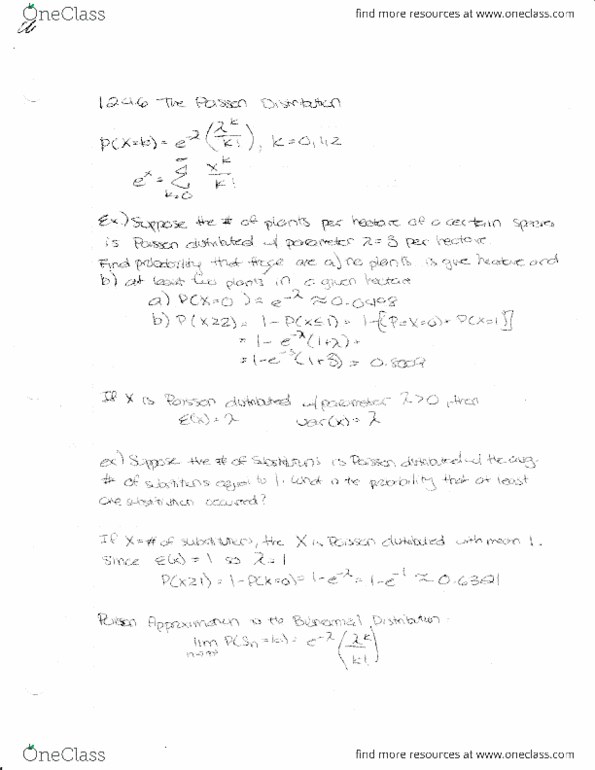 OneClass
find more resources at www.oneclass.com
12.4.6 The Poisson Distribution
P(X=k) = e^-λ (λ^k / k!), k=0,1,2
e^x = Σ_{k=0}^∞ x^k / k!
Ex.) Suppose the # of plants per hectare of a certain species
is Poisson distributed w/ parameter λ=3 per hectare.
Find probability that there are a) no plants is give hectare and
b) at least two plants in a given hectare
a) P(X=0) = e^-λ ≈ 0.0498
b) P(X≥2) = 1 - P(X≤1) = 1-[P=X=0) + P(X=1)]
= 1 - e^-λ (1+λ)
= 1-e^-3 (1+3) ≈ 0.8009
If X is Poisson distributed w/ parameter λ>0, then
E(X) = λ var(X) = λ
ex) Suppose the # of substitutions is Poisson distributed w/ the avg.
# of substitutions equal to 1. What is the probability that at least
one substitution occurred?
If X=# of substitutions, the X is Poisson distributed with mean 1.
Since E(X) = 1 so λ=1
P(X≥1) = 1-P(X=0) = 1-e^-λ = 1-e^-1 ≈ 0.6321
Poisson Approximation to the Binomial Distribution
lim n→∞ P(Sn=k) = e^-λ (λ^k / k!)
OneClass
find more resources at www.oneclass.com